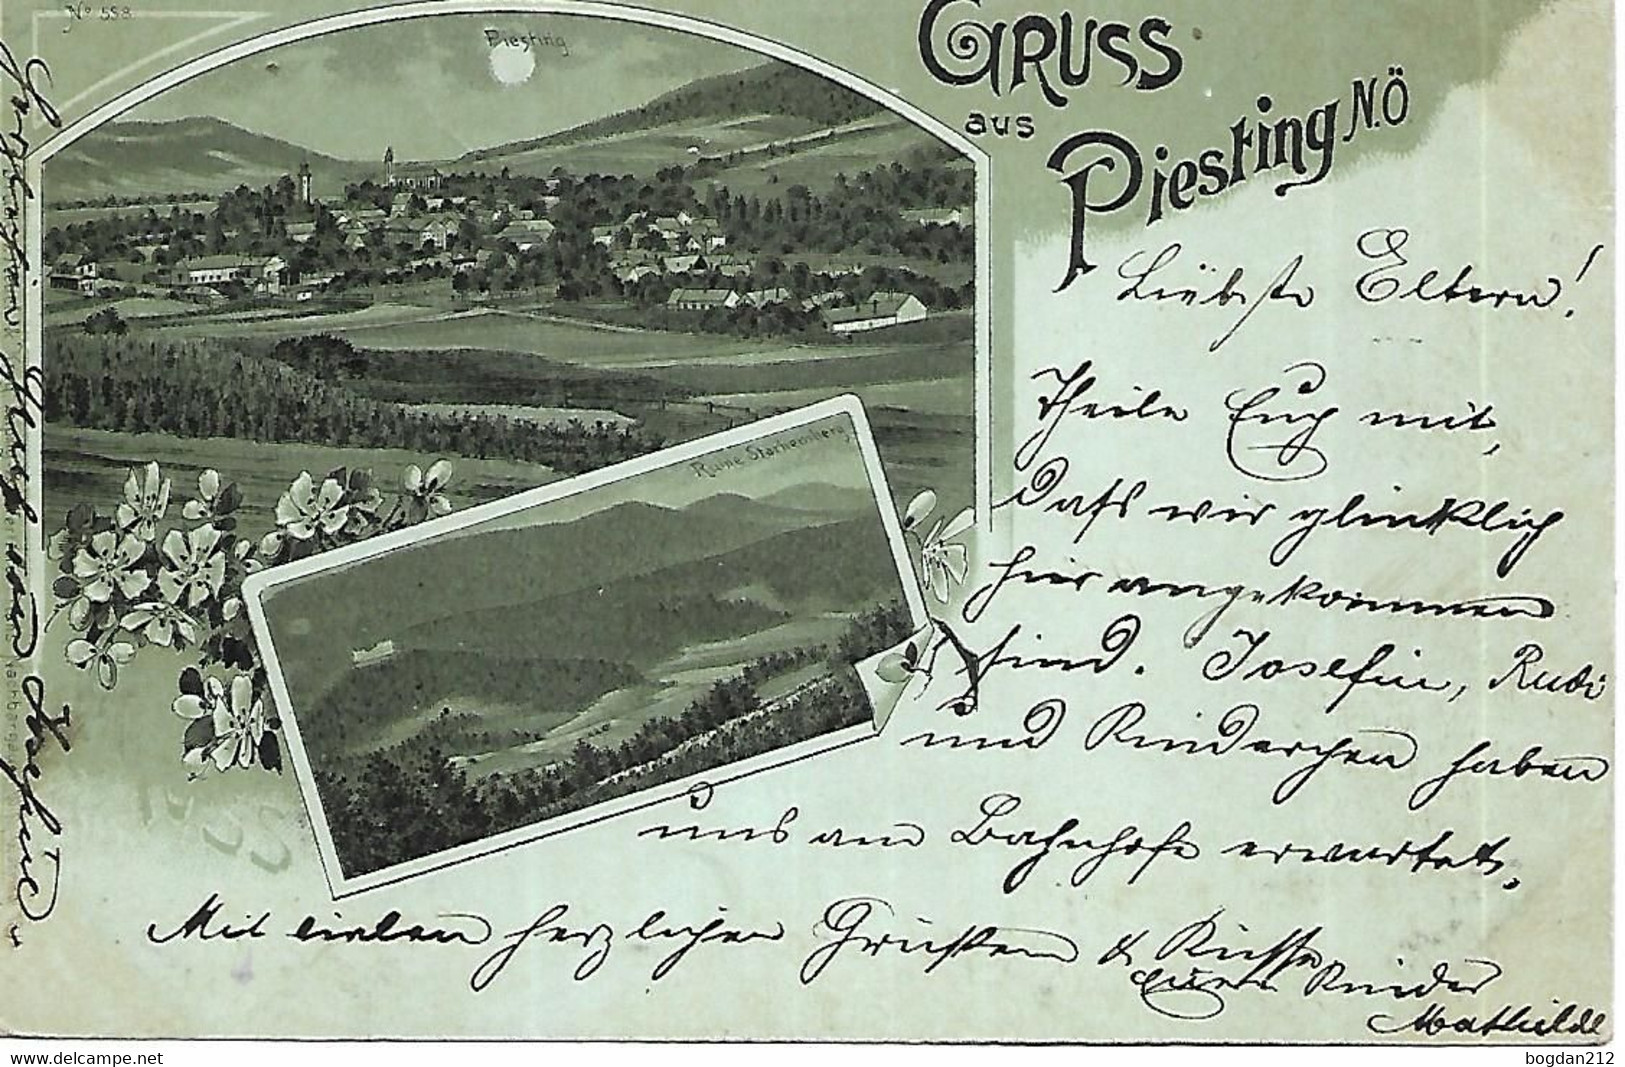 Nº 558
Piesting
GRUSS
aus
Piesting N.Ö
Ruine Starhemberg
Liebste Eltern!
Theile Euch mit,
daß wir glücklich
hier angekommen
sind. Josefin, Rudi
und Kinderchen haben
uns am Bahnhofe erwartet.
Mit vielen herzlichen Grüßen & Küsse
Eure Kinder
Mathilde
Gruß
auch von Josefine
delcampe.net
bogdan212